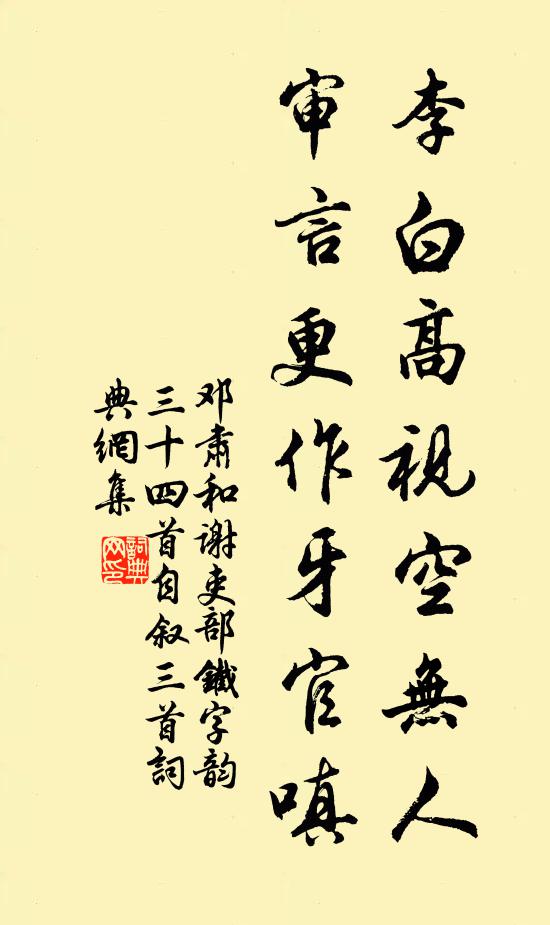 李白高視空無人
审言更作牙官嗔
邓肅和谢吏部鐵字韵
三十四首自叙三首詞
典網集
詞典网印